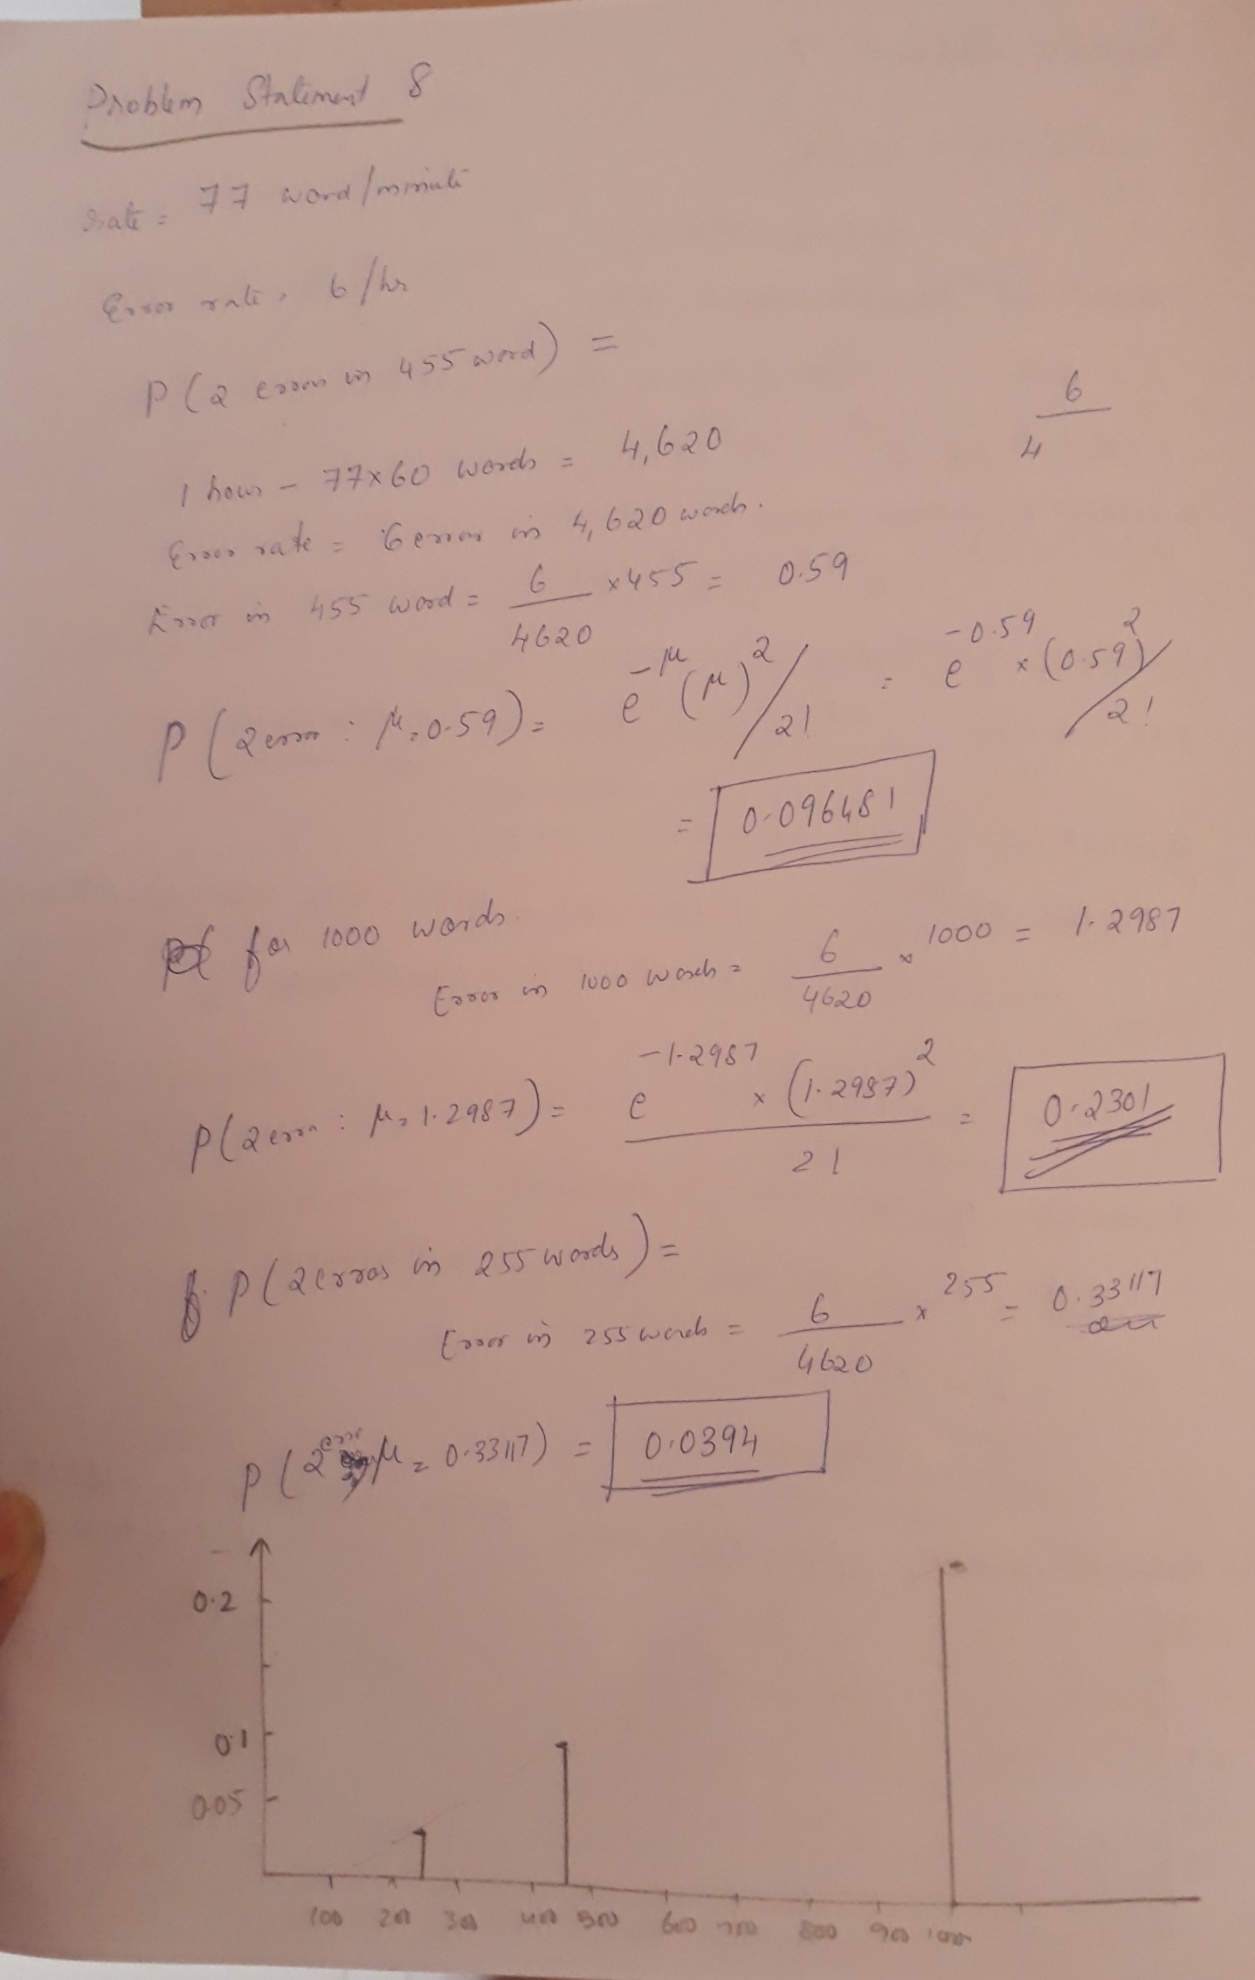 Problem Statement 8
rate = 77 word/minute
Error rate = 6/hr
P(2 error in 455 word) =
6
4
1 hour - 77×60 words = 4,620
Error rate = 6 error in 4,620 words.
Error in 455 word = 6/4620 ×455 = 0.59
P(2 error : μ=0.59) = e^-μ (μ)^2/2! = e^-0.59 × (0.59)^2/2!
= 0.096481
for 1000 words.
Error in 1000 words = 6/4620 × 1000 = 1.2987
P(2 error : μ=1.2987) = e^-1.2987 × (1.2987)^2/2! = 0.2301
P(2 erros in 255 words) =
Error in 255 words = 6/4620 × 255 = 0.33117
P(2 error μ = 0.33117) = 0.0394
0.2
0.1
0.05
100 200 300 400 500 600 700 800 900 1000